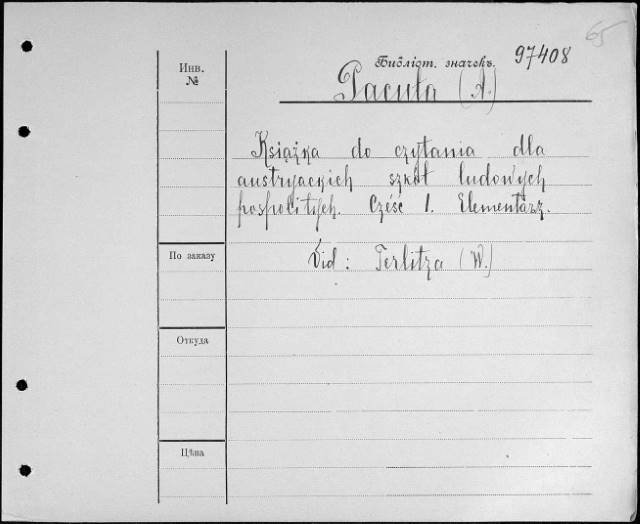 65
Библіот. значекъ. 97408
Инв.
№
Pacuła (A.)
Książka do czytania dla
austryackich szkół ludowych
pospolitych. Część I. Elementarz.
По заказу
Vid: Terlitza (W.)
Откуда
Цѣна